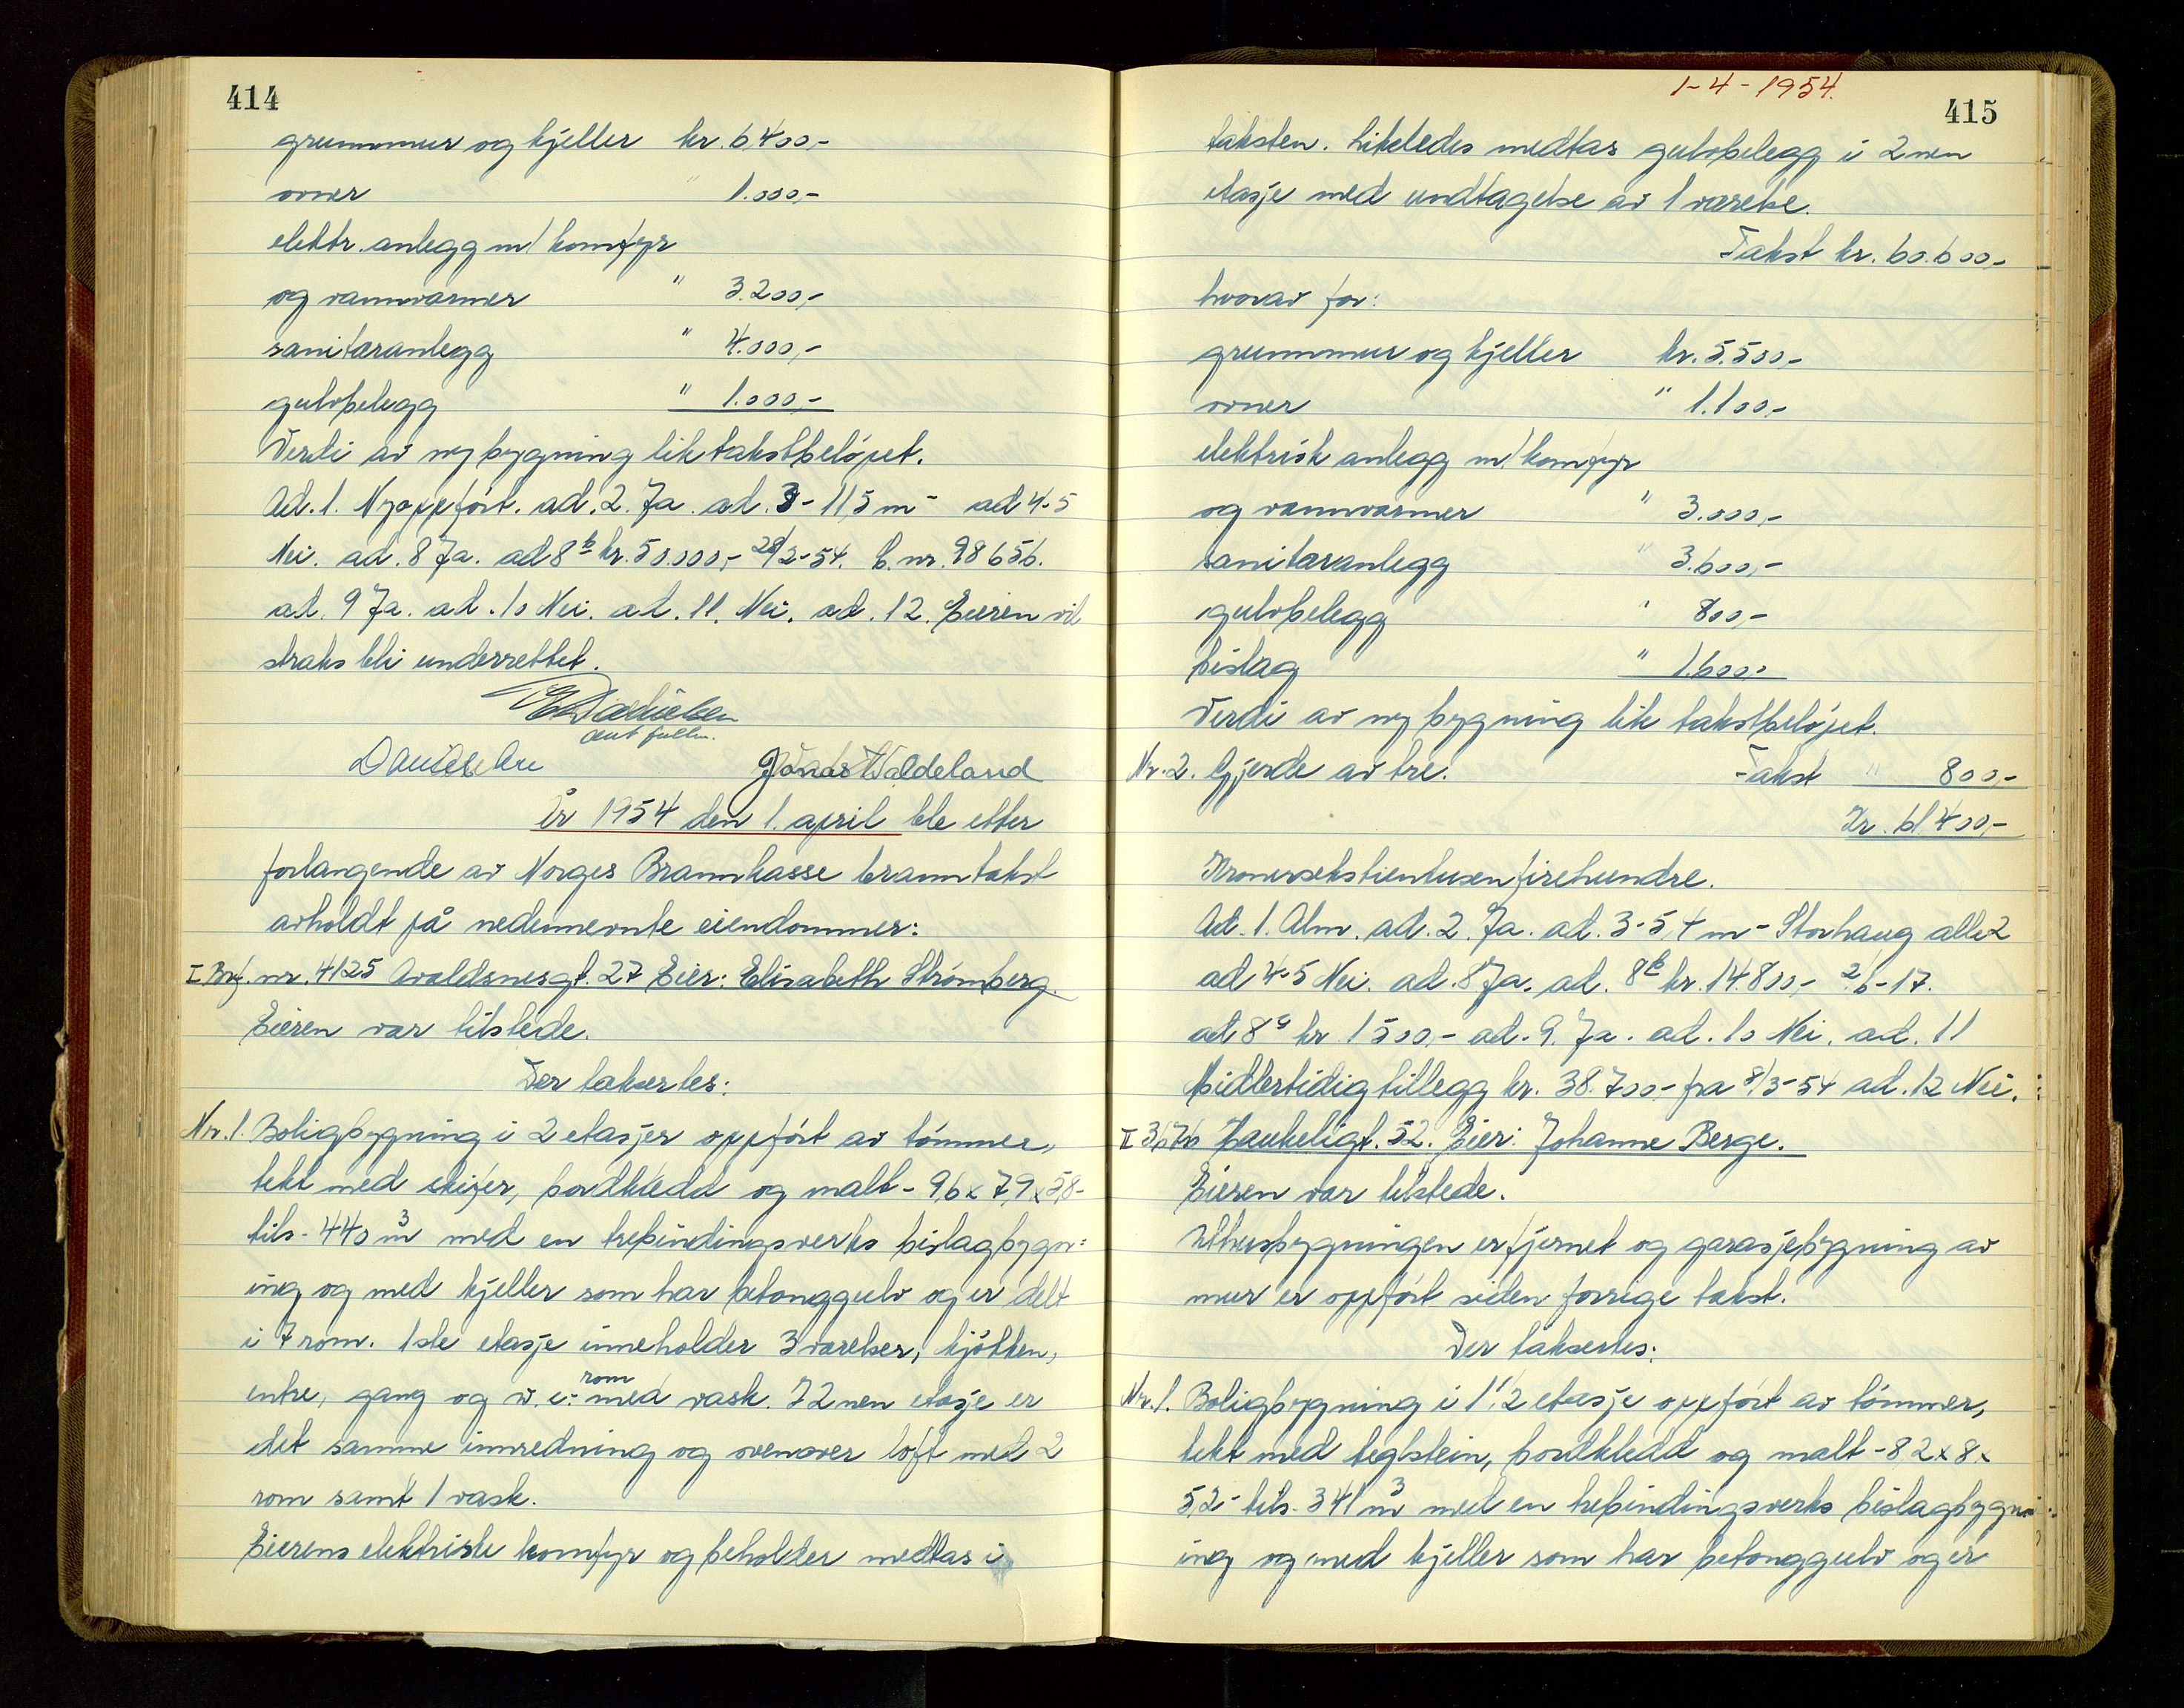 414
grunnmur og kjeller kr. 6.400,-
ovner " 1.000,-
elektr. anlegg m/ komfyr
og vannvarmer " 3.200,-
sanitæranlegg " 4.000,-
gulvbelegg " 1.000,-
Verdi av ny bygning lik takstbeløpet.
Ad. 1. Nyoppført. ad. 2. Ja. ad. 3 - 11,5 m - ad 4-5
Nei. ad. 8 Ja. ad 8b kr. 50.000,- 28/2-54. b. nr. 98656.
ad. 9 Ja. ad. 10 Nei. ad. 11. Nei. ad. 12. Eieren vil
straks bli underrettet.
aut fullm.
Jonas Waldeland
År 1954 den 1. april ble etter
forlangende av Norges Brannkasse branntakst
avholdt på nedennevnte eiendommer:
I Brf. nr. 4125 Avaldsnesgt. 27 Eier: Elisabeth Strømberg.
Eieren var tilstede.
Der taksertes:
Nr. 1. Boligbygning i 2 etasjer oppført av tømmer,
tekt med skifer, bordkledd og malt - 9,6 x 7,9 x 5,8 -
tils. 440 m3 med en trebindingsverks bislagbygn=
ing og med kjeller som har betonggulv og er delt
i 7 rom. 1ste etasje inneholder 3 værelser, kjøkken,
entre, gang og w.c. rom med vask. I 2nen etasje er
det samme innredning og ovenover loft med 2
rom samt 1 vask.
Eierens elektriske komfyr og beholder medtas i
1-4-1954.
415
taksten. Likeledes medtas gulvbelegg i 2nen
etasje med undtagelse av 1 værelse.
Takst kr. 60.600,-
hvorav for:
grunnmur og kjeller kr. 5.500,-
ovner " 1.100,-
elektrisk anlegg m/ komfyr
og vannvarmer " 3.000,-
sanitæranlegg " 3.600,-
gulvbelegg " 800,-
bislag " 1.600,-
Verdi av ny bygning lik takstbeløpet.
Nr. 2. Gjerde av tre. Takst " 800,-
Kr. 61400,-
Kronersekstientusenfirehundre.
Ad. 1. Alm. ad. 2. Ja. ad. 3 - 5,4 m - Storhaug allé 2
ad 4-5 Nei. ad. 8 Ja. ad. 8b kr. 14.800,- 2/6-17.
ad 8c kr 1500,- ad. 9. Ja. ad. 10 Nei. ad. 11
Midlertidig tillegg kr. 38.700,- fra 8/3-54 ad. 12 Nei.
II 3676 Haukeligt. 52. Eier: Johanne Berge.
Eieren var tilstede.
Uthusbygningen er fjernet og garasjebygning av
mur er oppført siden forrige takst.
Der taksertes:
Nr. 1. Boligbygning i 1 1/2 etasje oppført av tømmer,
tekt med teglstein, bordkledd og malt - 8,2 x 8 x
5,2 - tils. 341 m3 med en trebindingsverks bislagbygn=
ing og med kjeller som har betonggulv og er